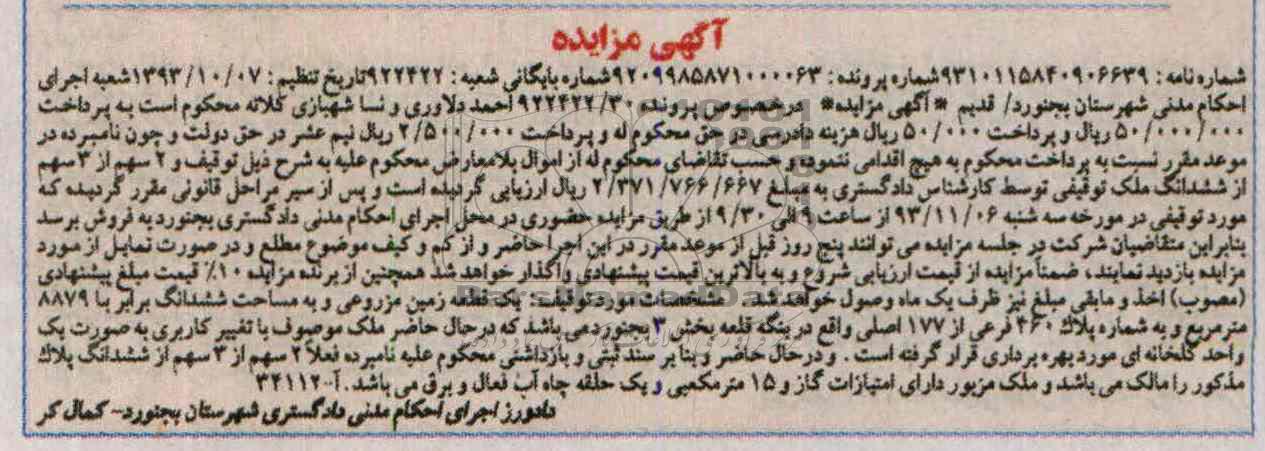 آگهی مزایده
شماره نامه : ۹۳۱۰۱۱۵۸۴۰۹۰۶۶۳۹شماره پرونده : ۹۲۰۹۹۸۵۸۷۱۰۰۰۰۶۳شماره بایگانی شعبه : ۹۲۲۴۲۲تاریخ تنظیم : ۱۳۹۳/۱۰/۰۷شعبه اجرای
احکام مدنی شهرستان بجنورد/ قدیم *آگهی مزایده* درخصوص پرونده ۹۲۲۴۲۲/۳۰ احمد دلاوری و نسا شهبازی کلاته محکوم است به پرداخت
۵۰/۰۰۰/۰۰۰ ریال و پرداخت ۵۰/۰۰۰ ریال هزینه دادرسی در حق محکوم له و پرداخت ۲/۵۰۰/۰۰۰ ریال نیم عشر در حق دولت و چون نامبرده در
موعد مقرر نسبت به پرداخت محکوم به هیچ اقدامی ننموده و حسب تقاضای محکوم له از اموال بلامعارض محکوم علیه به شرح ذیل توقیف و ۲ سهم از ۳ سهم
از ششدانگ ملک توقیفی توسط کارشناس دادگستری به مبلغ ۲/۳۷۱/۷۶۶/۶۶۷ ریال ارزیابی گردیده است و پس از سیر مراحل قانونی مقرر گردیده که
مورد توقیفی در مورخه سه شنبه ۹۳/۱۱/۰۶ از ساعت ۹ الی ۹/۳۰ از طریق مزایده حضوری در محل اجرای احکام مدنی دادگستری بجنورد به فروش برسد
بنابراین متقاضیان شرکت در جلسه مزایده می توانند پنج روز قبل از موعد مقرر در این اجرا حاضر و از کم و کیف موضوع مطلع و در صورت تمایل از مورد
مزایده بازدید نمایند، ضمناً مزایده از قیمت ارزیابی شروع و به بالاترین قیمت پیشنهادی واگذار خواهد شد همچنین از برنده مزایده ۱۰٪ قیمت مبلغ پیشنهادی
(مصوب) اخذ و مابقی مبلغ نیز ظرف یک ماه وصول خواهد شد. مشخصات مورد توقیف : یک قطعه زمین مزروعی و به مساحت ششدانگ برابر با ۸۸۷۹
مترمربع و به شماره پلاک ۴۶۰ فرعی از ۱۷۷ اصلی واقع در ینگه قلعه بخش ۳ بجنورد می باشد که درحال حاضر ملک موصوف با تغییر کاربری به صورت یک
واحد گلخانه ای مورد بهره برداری قرار گرفته است . و درحال حاضر و بنا بر سند ثبتی و بازداشتی محکوم علیه نامبرده فعلاً ۲ سهم از ۳ سهم از ششدانگ پلاک
مذکور را مالک می باشد و ملک مزبور دارای امتیازات گاز و ۱۵ مترمکعبی و یک حلقه چاه آب فعال و برق می باشد. آ-۳۴۱۱۲۰
دادورز اجرای احکام مدنی دادگستری شهرستان بجنورد- کمال کر